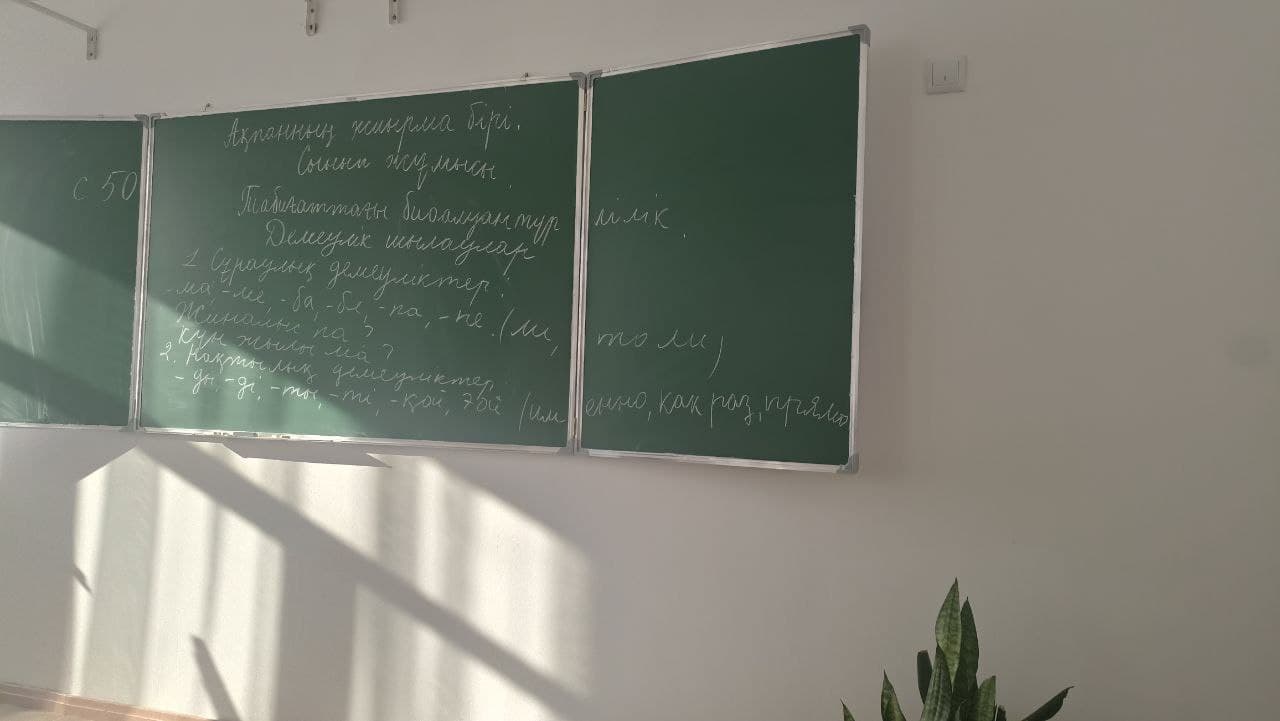 с 50
Ақпанның жиырма бірі.
Сынып жұмысы.
Табиғаттағы биоалуантүрлілік.
Демеулік шылаулар
1. Сұраулық демеуліктер:
-ма, -ме, -ба, -бе, -па, -пе. (ли, то ли)
Жиналыс па?
Күн жылы ма?
2. Нақтылық демеуліктер
- ды, -ді, -ты, -ті, -қой, ғой (именно, как раз, прямо